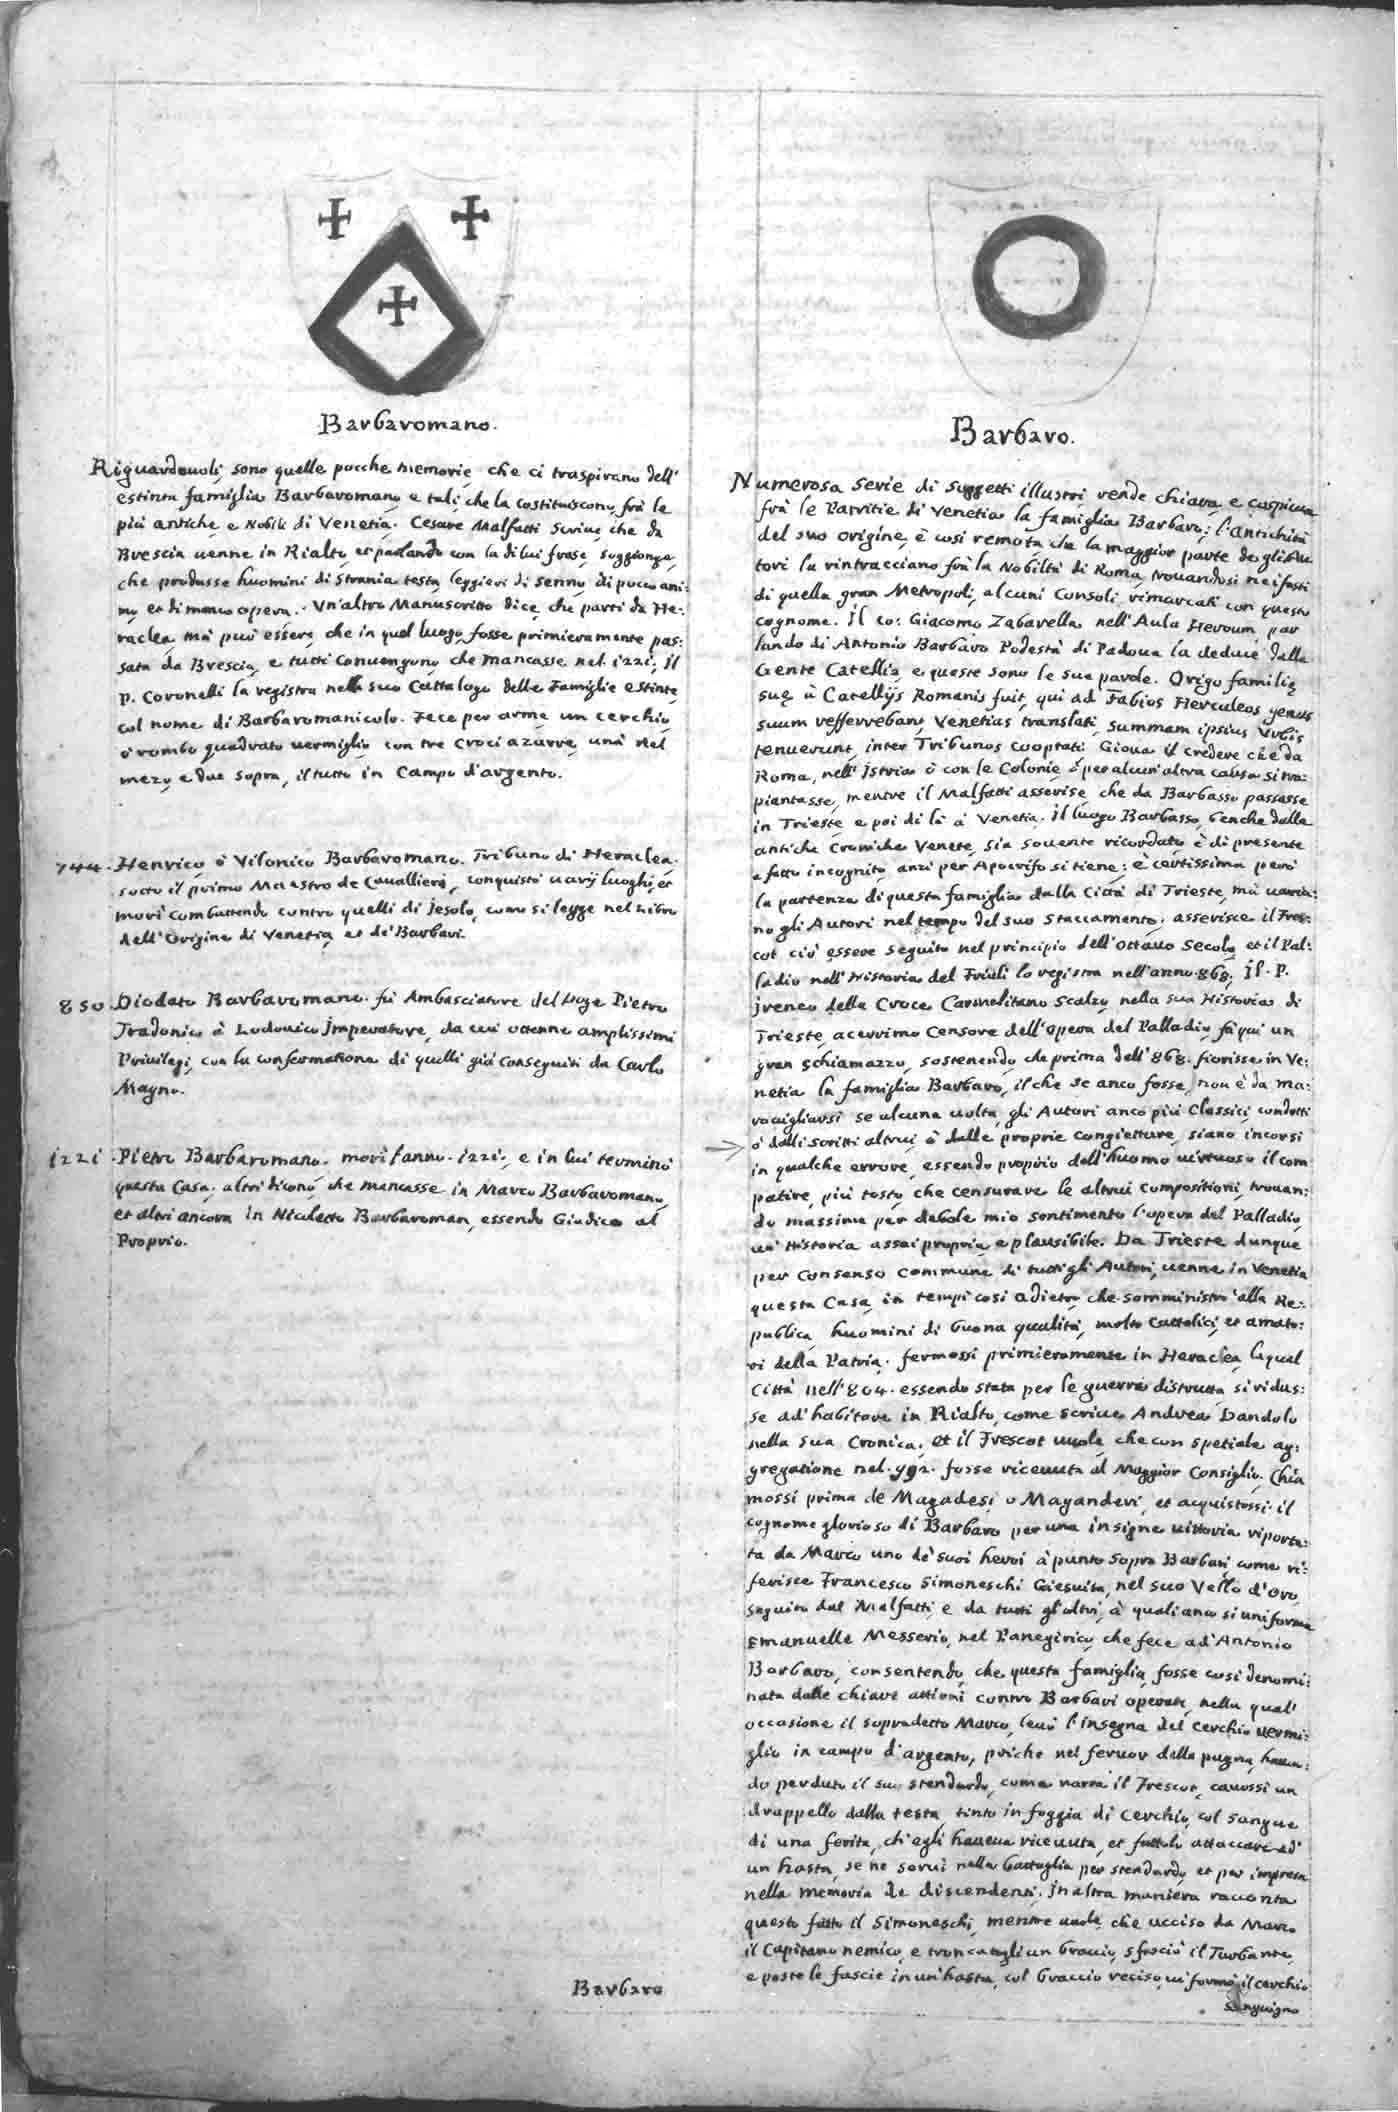 Barbaromano.
Riguardeuoli sono quelle pocche memorie, che ci traspirano dell'
estinta famiglia Barbaromano, e tali, che la costituiscono frà le
più antiche, e Nobili di Venetia. Cesare Malfatti scriue, che da
Brescia uenne in Rialto, et parlando con la di lui frase, soggionge,
che produsse huomini di strania testa, leggieri di senno, di pocco ani:
mo, et di manco opera. Un'altro Manuscritto dice, che partì da He:
raclea, mà può essere, che in quel luogo fosse primieramente pas:
sata da Brescia, e tutti conuengono, che mancasse nel 1221, il
P. Coronelli la registra nello suo Cattalogo delle Famiglie estinte
col nome di Barbaromanicolo. Fece per arme un cerchio,
ò rombo quadrato uermiglio con tre Croci azurre, una nel
mezo, e due sopra, il tutto in Campo d'argento.
744. Henrico, ò Vilonico Barbaromano. Tribuno di Heraclea.
sotto il primo Maestro de Cauallieri, conquistò uarij luoghi, et
morì combattendo contro quelli di Jesolo, como si legge nel Libro
dell'Origine di Venetia, et de' Barbari.
850 Diodato Barbaromano. fù Ambasciatore del Doge Pietro
Tradonico à Lodouico Imperatore, da cui ottenne amplissimi
Priuilegi, con la confermatione di quelli già conseguiti da Carlo
Magno.
1221 Pietro Barbaromano. morì l'anno. 1221, e in lui terminò
questa Casa. altri dicono, che mancasse in Marco Barbaromano,
et altri ancora in Nicoletto Barbaroman, essendo Giudice al
Proprio.
Barbaro
Barbaro.
Numerosa serie di soggetti illustri rende chiara, e cospicua
frà le Patritie di Venetia la famiglia Barbaro; l'antichità
del suo origine, è così remota che la maggior parte de gli Au
tori la rintracciano frà la Nobiltà di Roma, trouandosi ne i fasti
di quella gran Metropoli, alcuni Consoli rimarcati con questo
cognome. Il Co: Giacomo Zabarella nell'Aula Heroum par
lando di Antonio Barbaro Podestà di Padoua la deduce dalla
Gente Catellia, e queste sono le sue parole. Origo familię
suę à Catellijs Romanis fuit, qui ad Fabios Herculeos genus
suum refferrebant, Venetias translati, summam ipsius Urbis
tenuerunt, inter Tribunos cooptati. Gioua il credere che da
Roma, nell'Istria ò con le Colonie, ò per alcun'altra causa si tra:
piantasse, mentre il Malfatti asserise, che da Barbasso passasse
in Trieste, e poi di là à Venetia. Il luogo Barbasso, benche dalle
antiche Croniche Venete, sia souente ricordato, è di presente
a fatto incognito, anzi per Apocrifo si tiene; è certissima però
la partenza di questa famiglia dalla Città di Trieste, mà uaria:
no gli Autori nel tempo del suo staccamento, asserisce il Fres:
cot ciò essere seguito nel principio dell'ottauo secolo, et il Pal:
ladio nell'Historia del Friuli lo registra nell'anno 868. Il P.
Ireneo della Croce Carmelitano Scalzo, nella sua Historia di
Trieste, acerrimo Censore dell'opera del Palladio, fà qui un
gran schiamazzo, sostenendo, che prima dell'868. fiorisse in Ve:
netia la famiglia Barbaro, il che se anco fosse, non è da ma:
rauigliarsi se alcuna uolta, gli Autori anco più Classici, condotti
ò dalli scritti altrui, ò dalle proprie congietture, siano incorsi
in qualche errore, essendo proprio dell'huomo uirtuoso il com
patire, più tosto, che censurare le altrui compositioni, trouan:
do massime per debole mio sentimento l'opera del Palladio,
un'Historia assai propria, e plausibile. Da Trieste dunque
per consenso commune di tutti gli Autori, uenne in Venetia
questa Casa, in tempi così adietro, che somministrò alla Re:
publica, huomini di buona qualità, molto Cattolici, et amato:
ri della Patria. fermossi primieramente in Heraclea, la qual
Città nell'804. essendo stata per le guerre distrutta, si ridus:
se ad'habitare in Rialto, come scriue Andrea Dandolo
nella sua Cronica, et il Frescot uuole, che con spetiale ag:
gregatione nel. 992. fosse riceuuta al Maggior Consiglio. Chia
mossi prima de Magadesi, o Maganderi, et acquistossi il
cognome glorioso di Barbaro per una insigne uittoria riporta:
ta da Marco uno de' suoi heroi à punto sopra Barbari, come ri:
ferisce Francesco Simoneschi Giesuita, nel suo Vello d'Oro,
seguito dal Malfatti, e da tutti gl'altri, à quali anco si uniforma
Emanuelle Messerio, nel Panegirico, che fece ad'Antonio
Barbaro, consentendo, che questa famiglia, fosse così denomi:
nata dalle chiare attioni contro Barbari operate, nella qual'
occasione il sopradetto Marco, leuò l'insegna del cerchio uermi:
glio in campo d'argento, poiche nel feruor della pugna, hauen:
do perduto il suo stendardo, come narra il Frescot, cauossi un
drappello dalla testa, tinto in foggia di cerchio, col sangue
di una ferita, ch'egli haueua riceuuta, et fattolo attaccare ad'
un hasta, se ne seruì nella battaglia per stendardo, et per impresa
nella memoria de discendenti. In altra maniera racconta
questo fatto il Simoneschi, mentre uuole, che ucciso da Marco
il Capitano nemico, e troncatogli un braccio, sfasciò il Turbante,
e poste le fascie in un'hasta, col braccio reciso, ui formò il cerchio
sanguigno